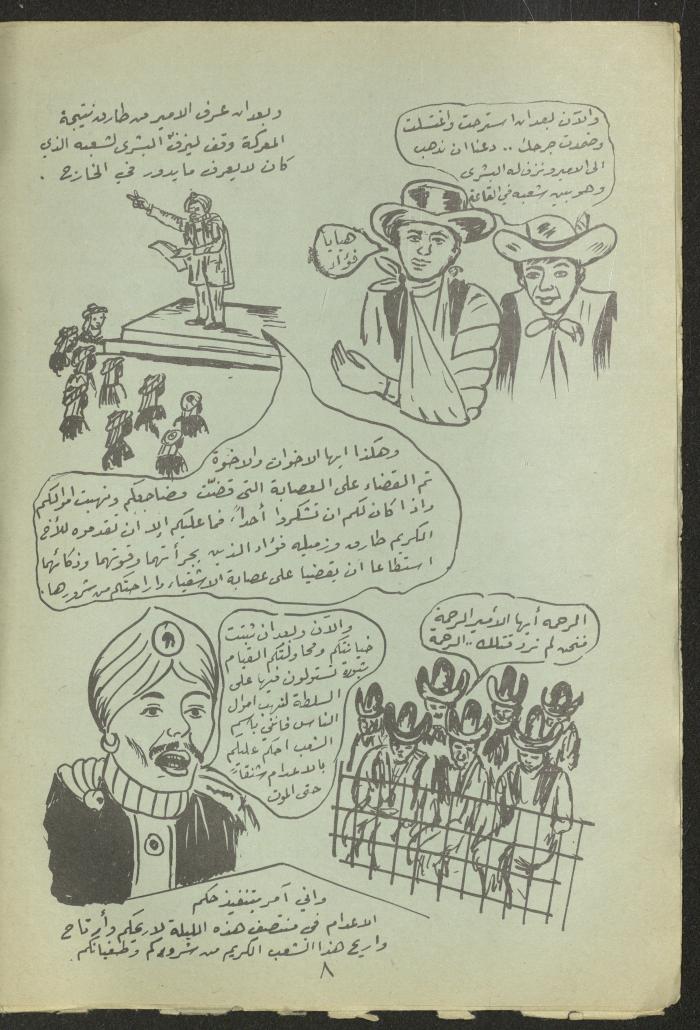 والآن بعد ان استرحت واغتسلت
وضمدت جرحك .. دعنا ان نذهب
الى الامير ونزف له البشرى
وهو بين شعبه في القاعة
هيا يا
فؤاد
وبعد ان عرف الامير من طارق نتيجة
المعركة وقف ليزف البشرى لشعبه الذي
كان لا يعرف ما يدور في الخارج .
وهكذا ايها الاخوات والاخوة
تم القضاء على العصابة التي قضّت مضاجعكم ونهبت اموالكم
واذا كان لكم ان تشكروا أحداً، فما عليكم إلا ان تقدموه للأخ
الكريم طارق وزميله فؤاد الذين بجرأتهما وقوتهما وذكائهما
استطاعا ان يقضيا على عصابة الاشقياء واراحتكم من شرورها.
الرحمه أيها الأمير الرحمة
فنحن لم نرد قتلك .. الرحمة
والآن وبعد ان ثبتت
خيانتكم ومحاولتكم القيام
بثورة تستولون فيها على
السلطة لنهب اموال
الناس فانني باسم
الشعب احكم عليكم
بالاعدام شنقاً
حتى الموت
واني آمر بتنفيذ حكم
الاعدام في منتصف هذه الليلة لاريحكم وأرتاح
واريح هذا الشعب الكريم من شروركم وطغيانكم
٨